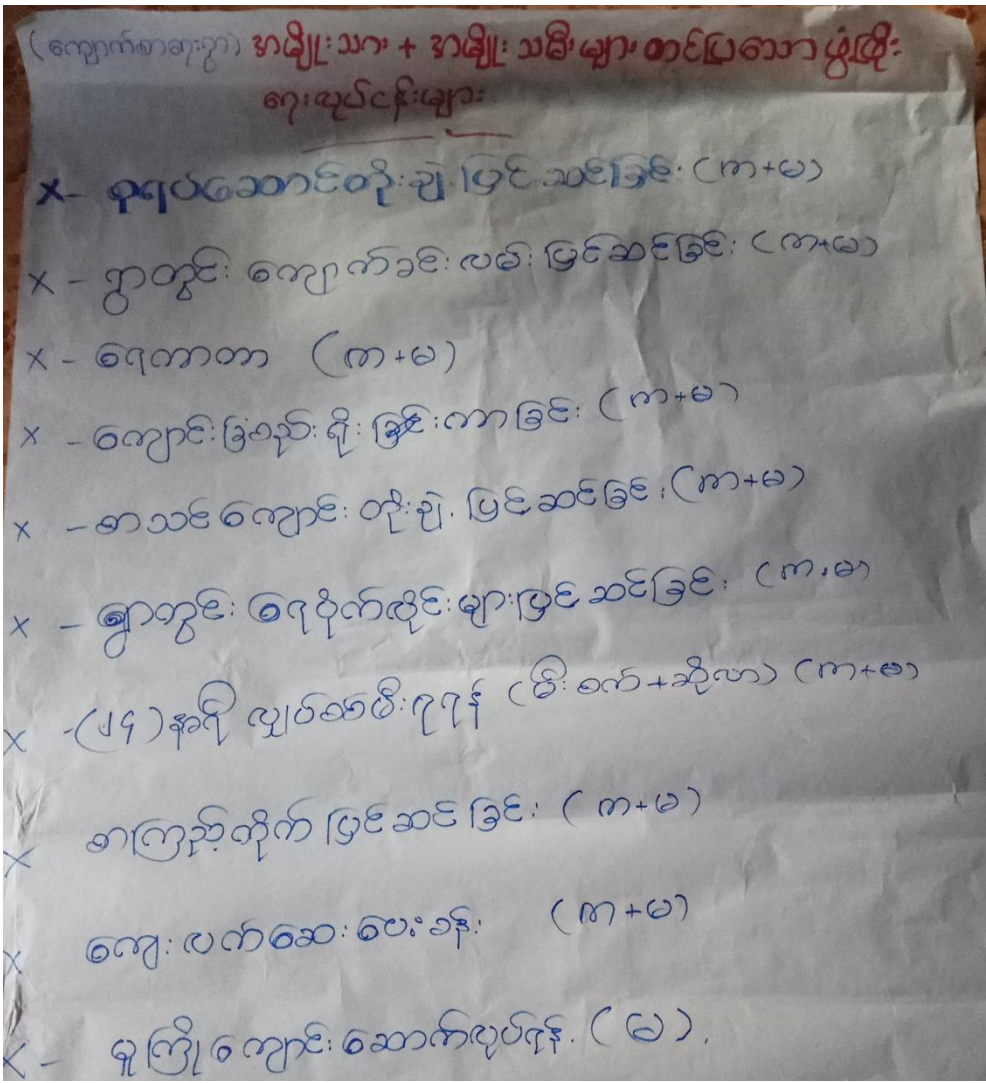 (ကျောက်စာဆူးရွာ) အမျိုးသား + အမျိုးသမီးများ တင်ပြသော ဖွံ့ဖြိုး
ရေးလုပ်ငန်းများ
x - စုရပ်ဆောင်တိုးချဲ့ ပြင်ဆင်ခြင်း (ကာ+မ)
x - ရွာတွင်း ကျောက်ခင်းလမ်း ပြင်ဆင်ခြင်း (ကာ+မ)
x - ရေကာတာ (ကာ+မ)
x - ကျောင်းခြံစည်းရိုး ခြင်းကာခြင်း (ကာ+မ)
x - စာသင်ကျောင်း တိုးချဲ့ ပြင်ဆင်ခြင်း (ကာ+မ)
x - ရွာတွင်း ရေပိုက်လိုင်းများပြင်ဆင်ခြင်း (ကာ+မ)
x -(၂၄)နာရီ လျှပ်စစ်မီးရရန် (မီးစက်+ဆိုလာ) (ကာ+မ)
x စာကြည့်တိုက် ပြင်ဆင်ခြင်း (ကာ+မ)
x ကျေးလက်ဆေးပေးခန်း (ကာ+မ)
x - မူကြိုကျောင်းဆောက်လုပ်ရန် (မ).